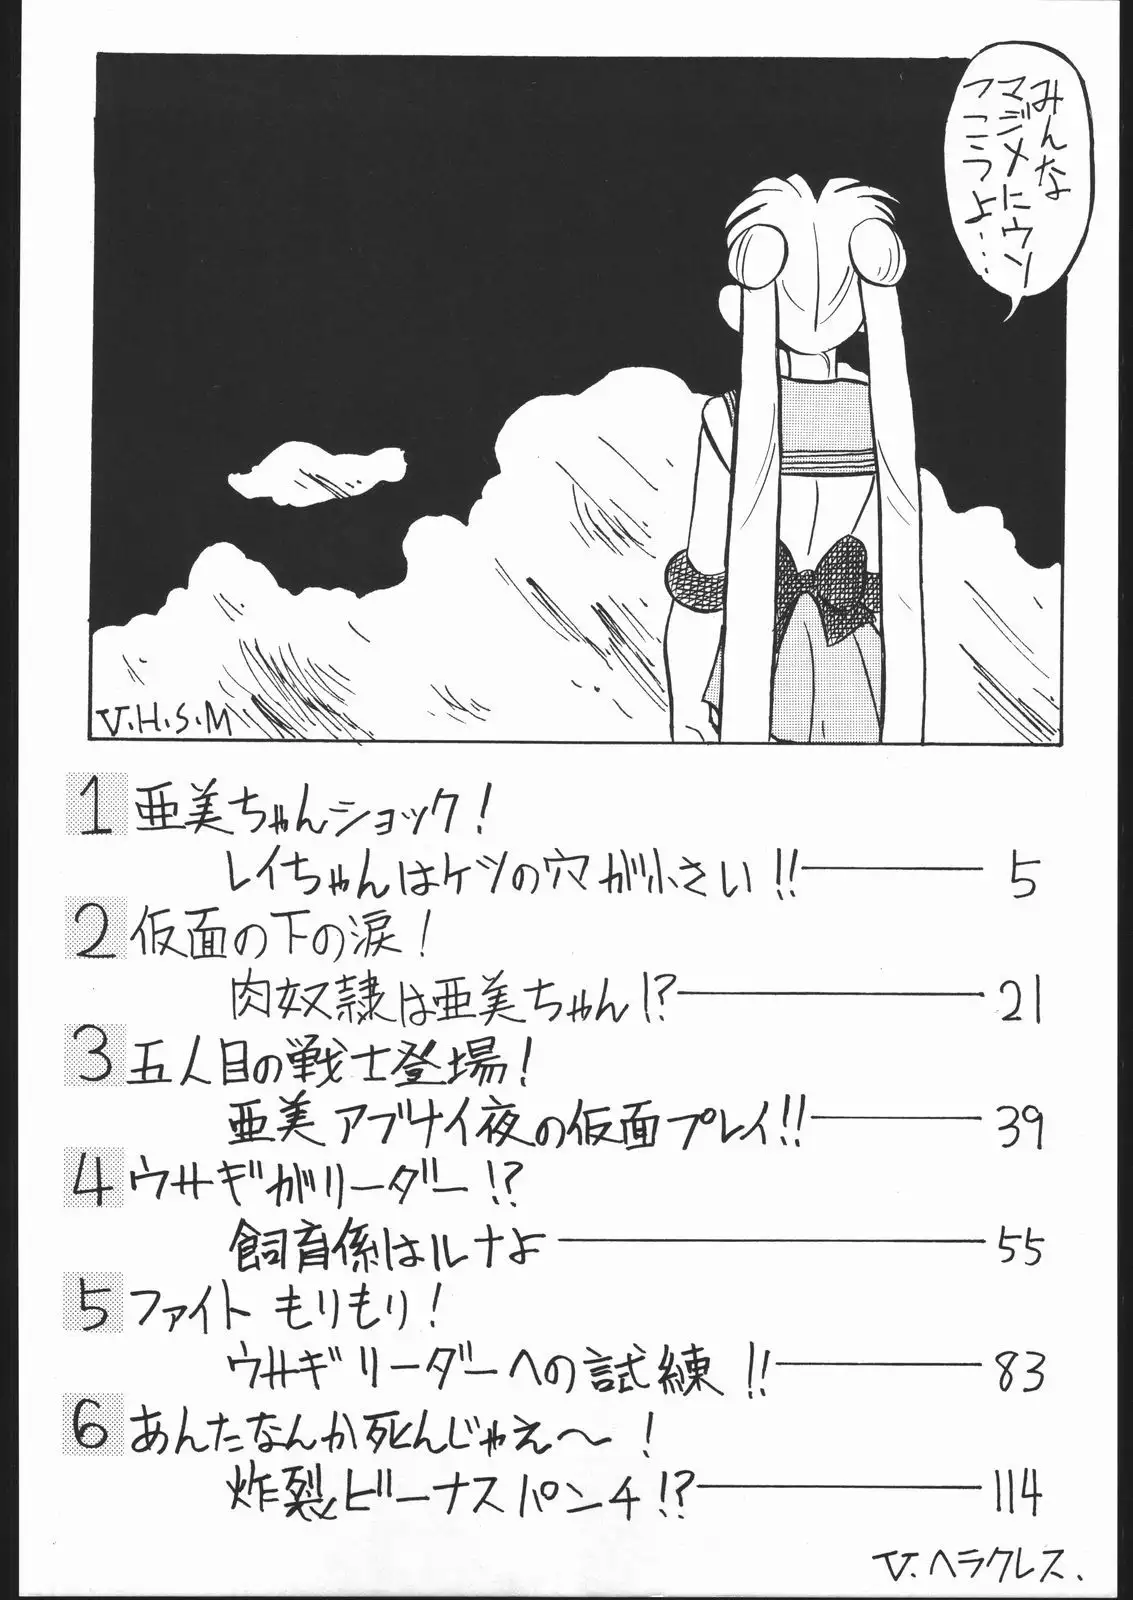 みんな
マジメにウソ
つこうよ…
V.H.S.M
1 亜美ちゃんショック!
レイちゃんはケツの穴が小さい!! 5
2 仮面の下の涙!
肉奴隷は亜美ちゃん!? 21
3 五人目の戦士登場!
亜美 アブナイ夜の仮面プレイ!! 39
4 ウサギがリーダー!?
飼育係はルナよ 55
5 ファイト もりもり!
ウサギリーダーへの試練!! 83
6 あんたなんか死んじゃえ〜!
炸裂ビーナスパンチ!? 114
V.ヘラクレス.